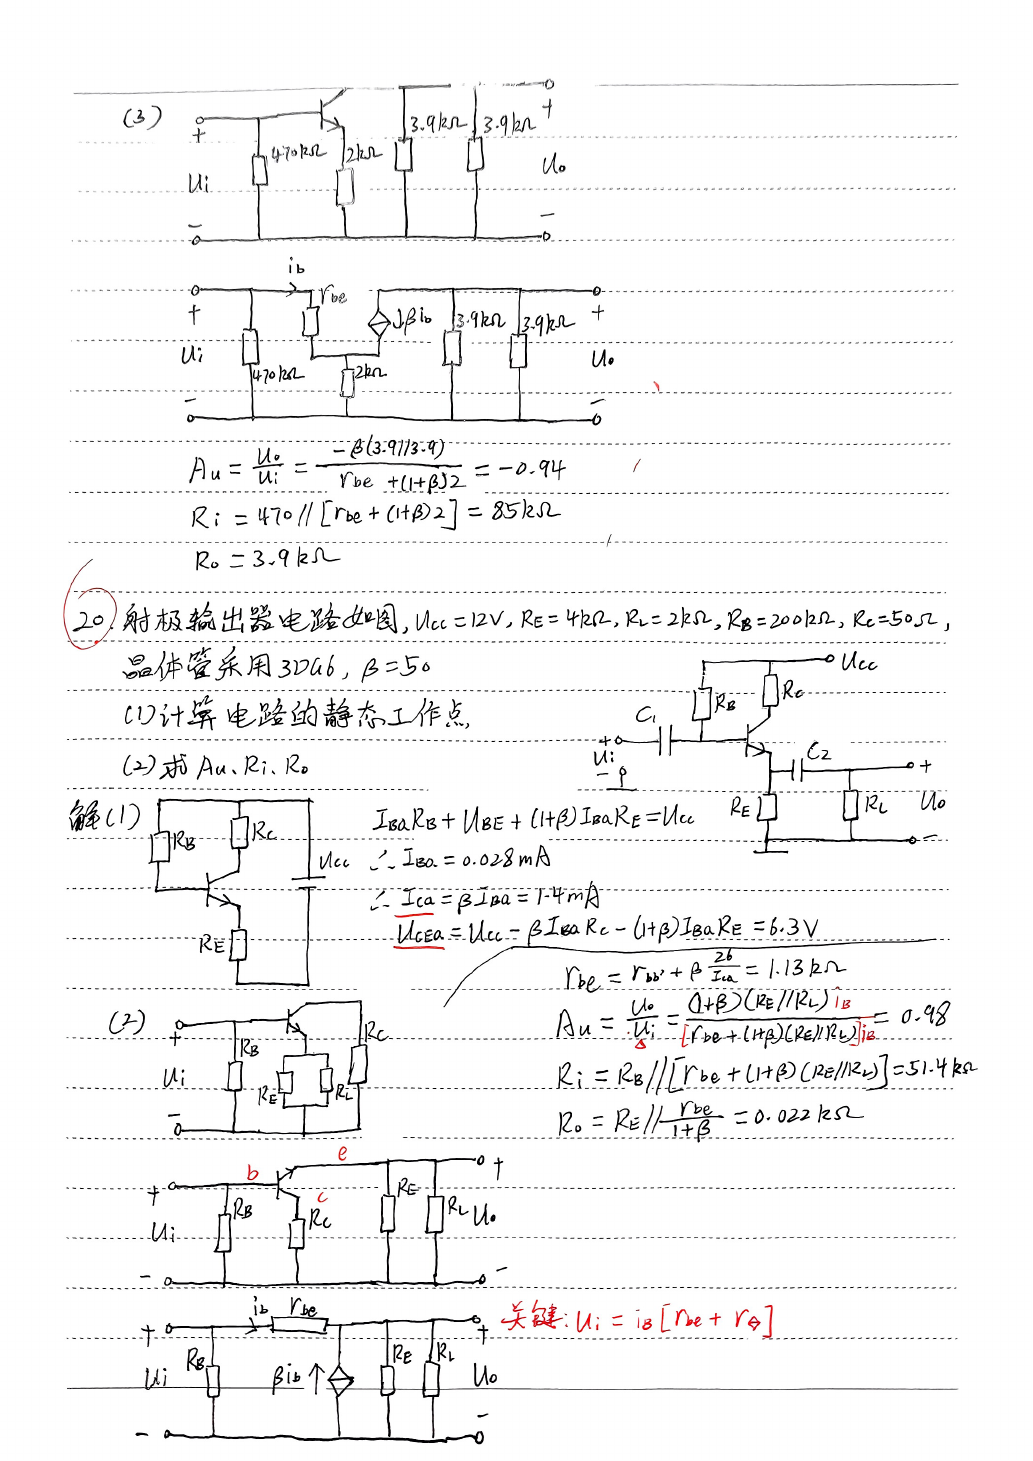 (3)
+ 470kΩ 2kΩ 3.9kΩ 3.9kΩ +
Ui Uo
- -
ib
+ rbe ↓βib 3.9kΩ 3.9kΩ +
Ui 470kΩ 2kΩ Uo
- -
Au = Uo/Ui = -β(3.9//3.9)/(rbe+(1+β)2) = -0.94
Ri = 470//[rbe+(1+β)2] = 85kΩ
Ro = 3.9kΩ
20. 射极输出器电路如图, Ucc=12V, RE=4kΩ, RL=2kΩ, RB=200kΩ, Rc=50Ω,
晶体管采用3DG6, β=50
(1)计算电路的静态工作点
(2)求Au、Ri、Ro
Ucc
RB Rc
C1
+ Ui -
C2
RE RL + Uo -
解(1)
RB Rc Ucc
RE
IBQRB+UBE+(1+β)IBQRE=Ucc
∴ IBQ=0.028mA
∴ ICQ=βIBQ=1.4mA
UCEQ=Ucc-βIBQRc-(1+β)IBQRE=6.3V
(2)
+ Ui -
RB RE RL Rc
rbe = rbb'+β 26/ICQ = 1.13kΩ
Au = Uo/Ui = (1+β)(RE//RL)iB/[rbe+(1+β)(RE//RL)]iB = 0.98
Ri = RB//[rbe+(1+β)(RE//RL)]=51.4kΩ
Ro = RE//rbe/1+β = 0.022kΩ
b e c
+ Ui -
RB Rc RE RL + Uo -
ib rbe
+ Ui -
RB βib↑ RE RL + Uo -
关键: Ui = iB[rbe+r